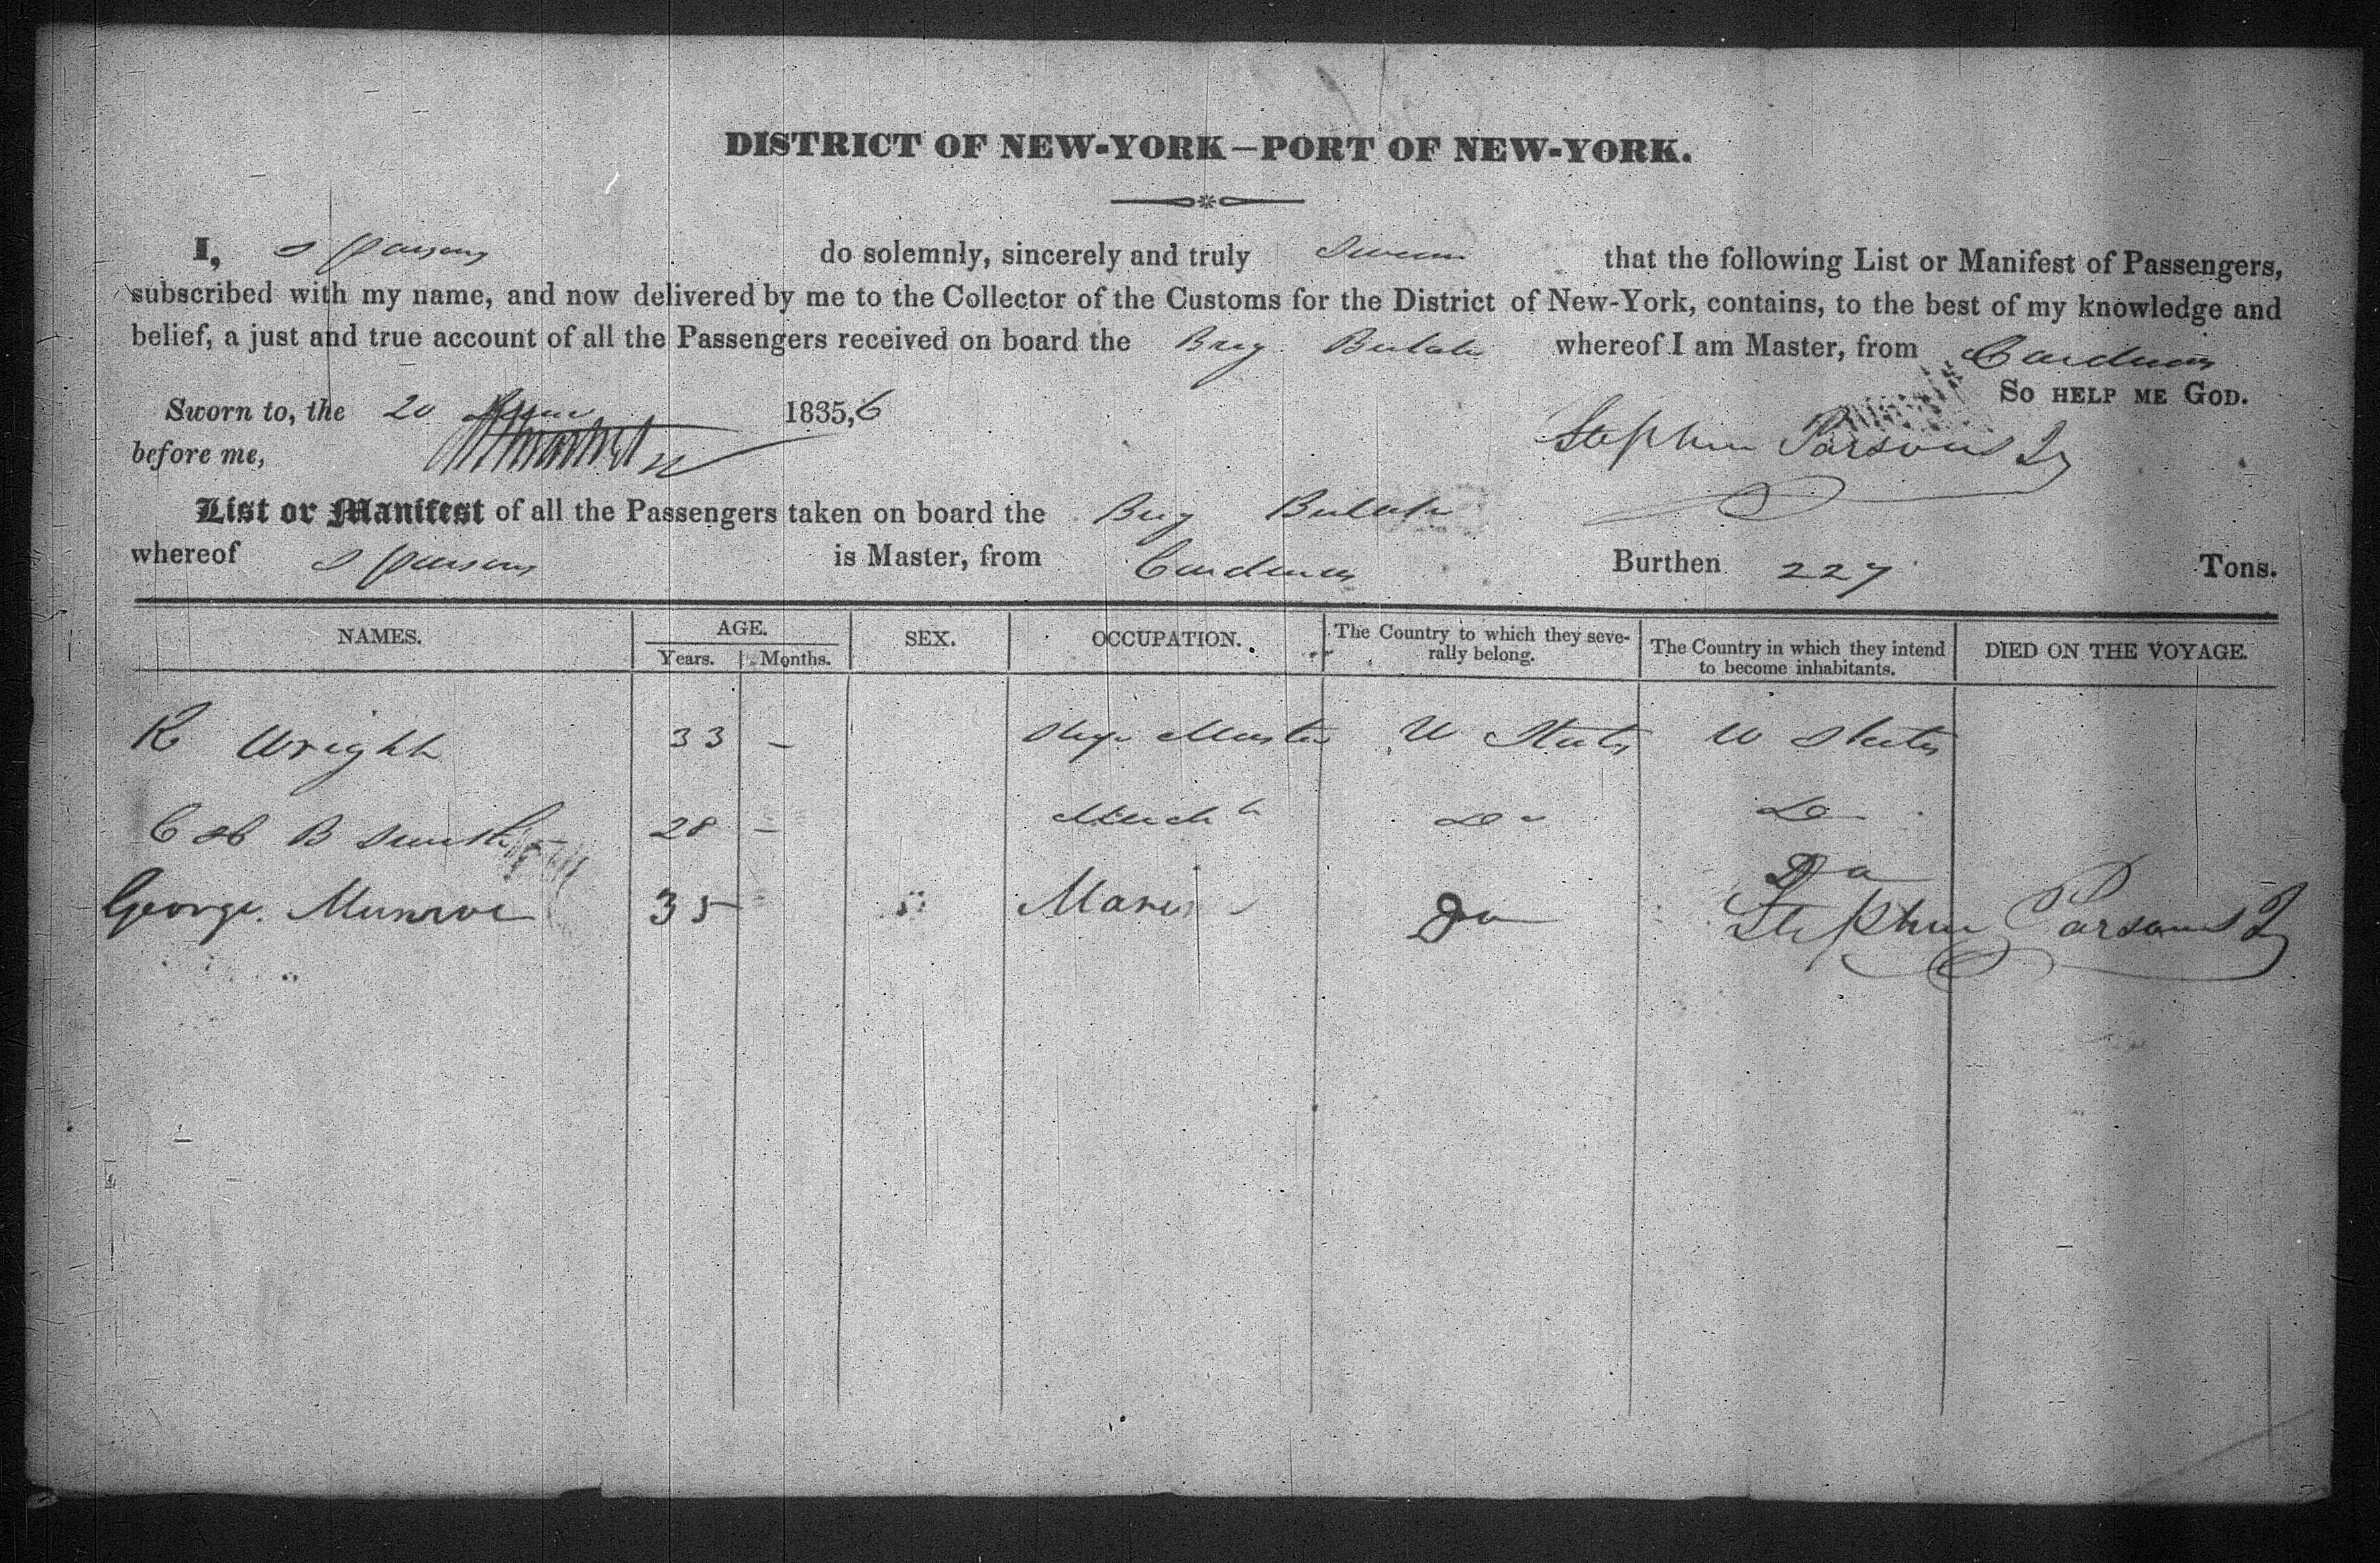 DISTRICT OF NEW-YORK—PORT OF NEW-YORK.
I, S Parsons do solemnly, sincerely and truly Swear that the following List or Manifest of Passengers,
subscribed with my name, and now delivered by me to the Collector of the Customs for the District of New-York, contains, to the best of my knowledge and
belief, a just and true account of all the Passengers received on board the Brig Bulah whereof I am Master, from Cardenas
So HELP ME GOD.
Sworn to, the 20 June 1835,6
before me,
Stephen Parsons Jr
List or Manifest of all the Passengers taken on board the Brig Bulah
whereof S Parsons is Master, from Cardenas Burthen 227 Tons.
NAMES. AGE. SEX. OCCUPATION. The Country to which they seve- The Country in which they intend DIED ON THE VOYAGE.
Years. Months. rally belong. to become inhabitants.
R Wright 33 - Ship Master U States U States
B Smith 28 - Mercht Do Do
George Munroe 35 Do Do
Stephen Parsons Jr